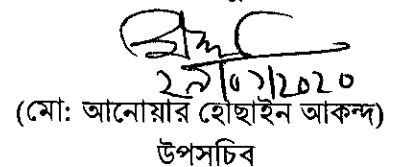 ২৯/০১/২০২০
(মো: আনোয়ার হোছাইন আকন্দ)
উপসচিব